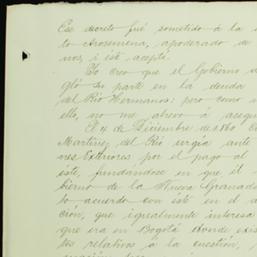 Ese decreto fué sometido á la
to Arosemena, apoderado de
nos, i este aceptó.
Yo creo que el Gobierno
gló su parte en la deuda
del Río Hermanos: pero como
ello, no me atrevo á asegu
El 4 de Diciembre de 1860
Martínez del Río urgía ante
nes Exteriores por el pago al
este, fundandose en que él
bierno de la Nueva Granada
to acuerdo con éste en el
ción, que igualmente interesa
que era en Bogotá donde exis
tos relativos á la cuestión,